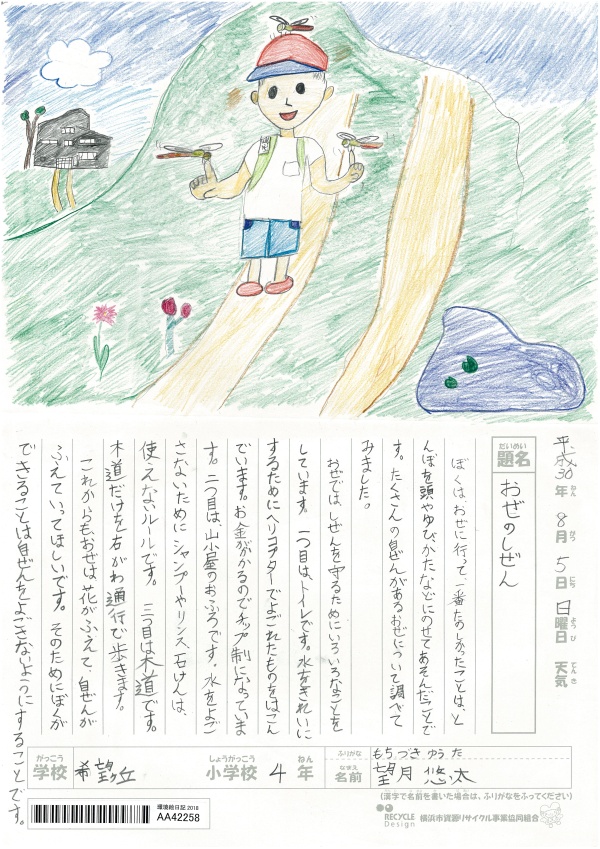 平成30年 8月 5日 日曜日 天気
ねん がつ にち ようび てんき
だいめい
題名 おぜのしぜん
ぼくは、おぜに行って、一番たのしかったことは、と
んぼを頭やゆびかたなどにのせてあそんだことで
す。たくさんの自ぜんがあるおぜについて調べて
みました。
おぜでは、しぜんを守るためにいろいろなことを
しています。一つ目は、トイレです。水をきれいに
するためにヘリコプターでよごれたものをはこん
でいます。お金がかかるのでチップ制になっていま
す。二つ目は、山小屋のおふろです。水をよご
さないためにシャンプーやリンス、石けんは、
使えないルールです。三つ目は木道です。
木道だけを右がわ通行で歩きます。
これからも、おぜは、花がふえて、自ぜんが
ふえていってほしいです。そのためにぼくが
できることは自ぜんをよごさないようにすることです。
がっこう しょうがっこう ねん
学校 希望ヶ丘 小学校 4年
ふりがな もちづき ゆうた
なまえ
名前 望月 悠太
(漢字で名前を書いた場合は、ふりがなをふってください)
環境絵日記 2018
AA42258
RECYCLE Design 横浜市資源リサイクル事業協同組合